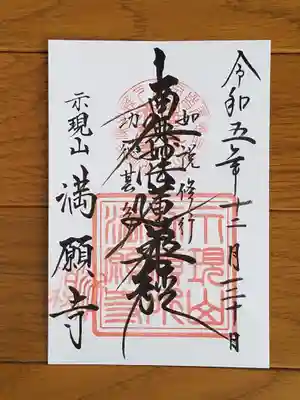 令和五年十二月二十日
如説修行
南無妙法蓮華経
功徳甚多
示現山
満願寺